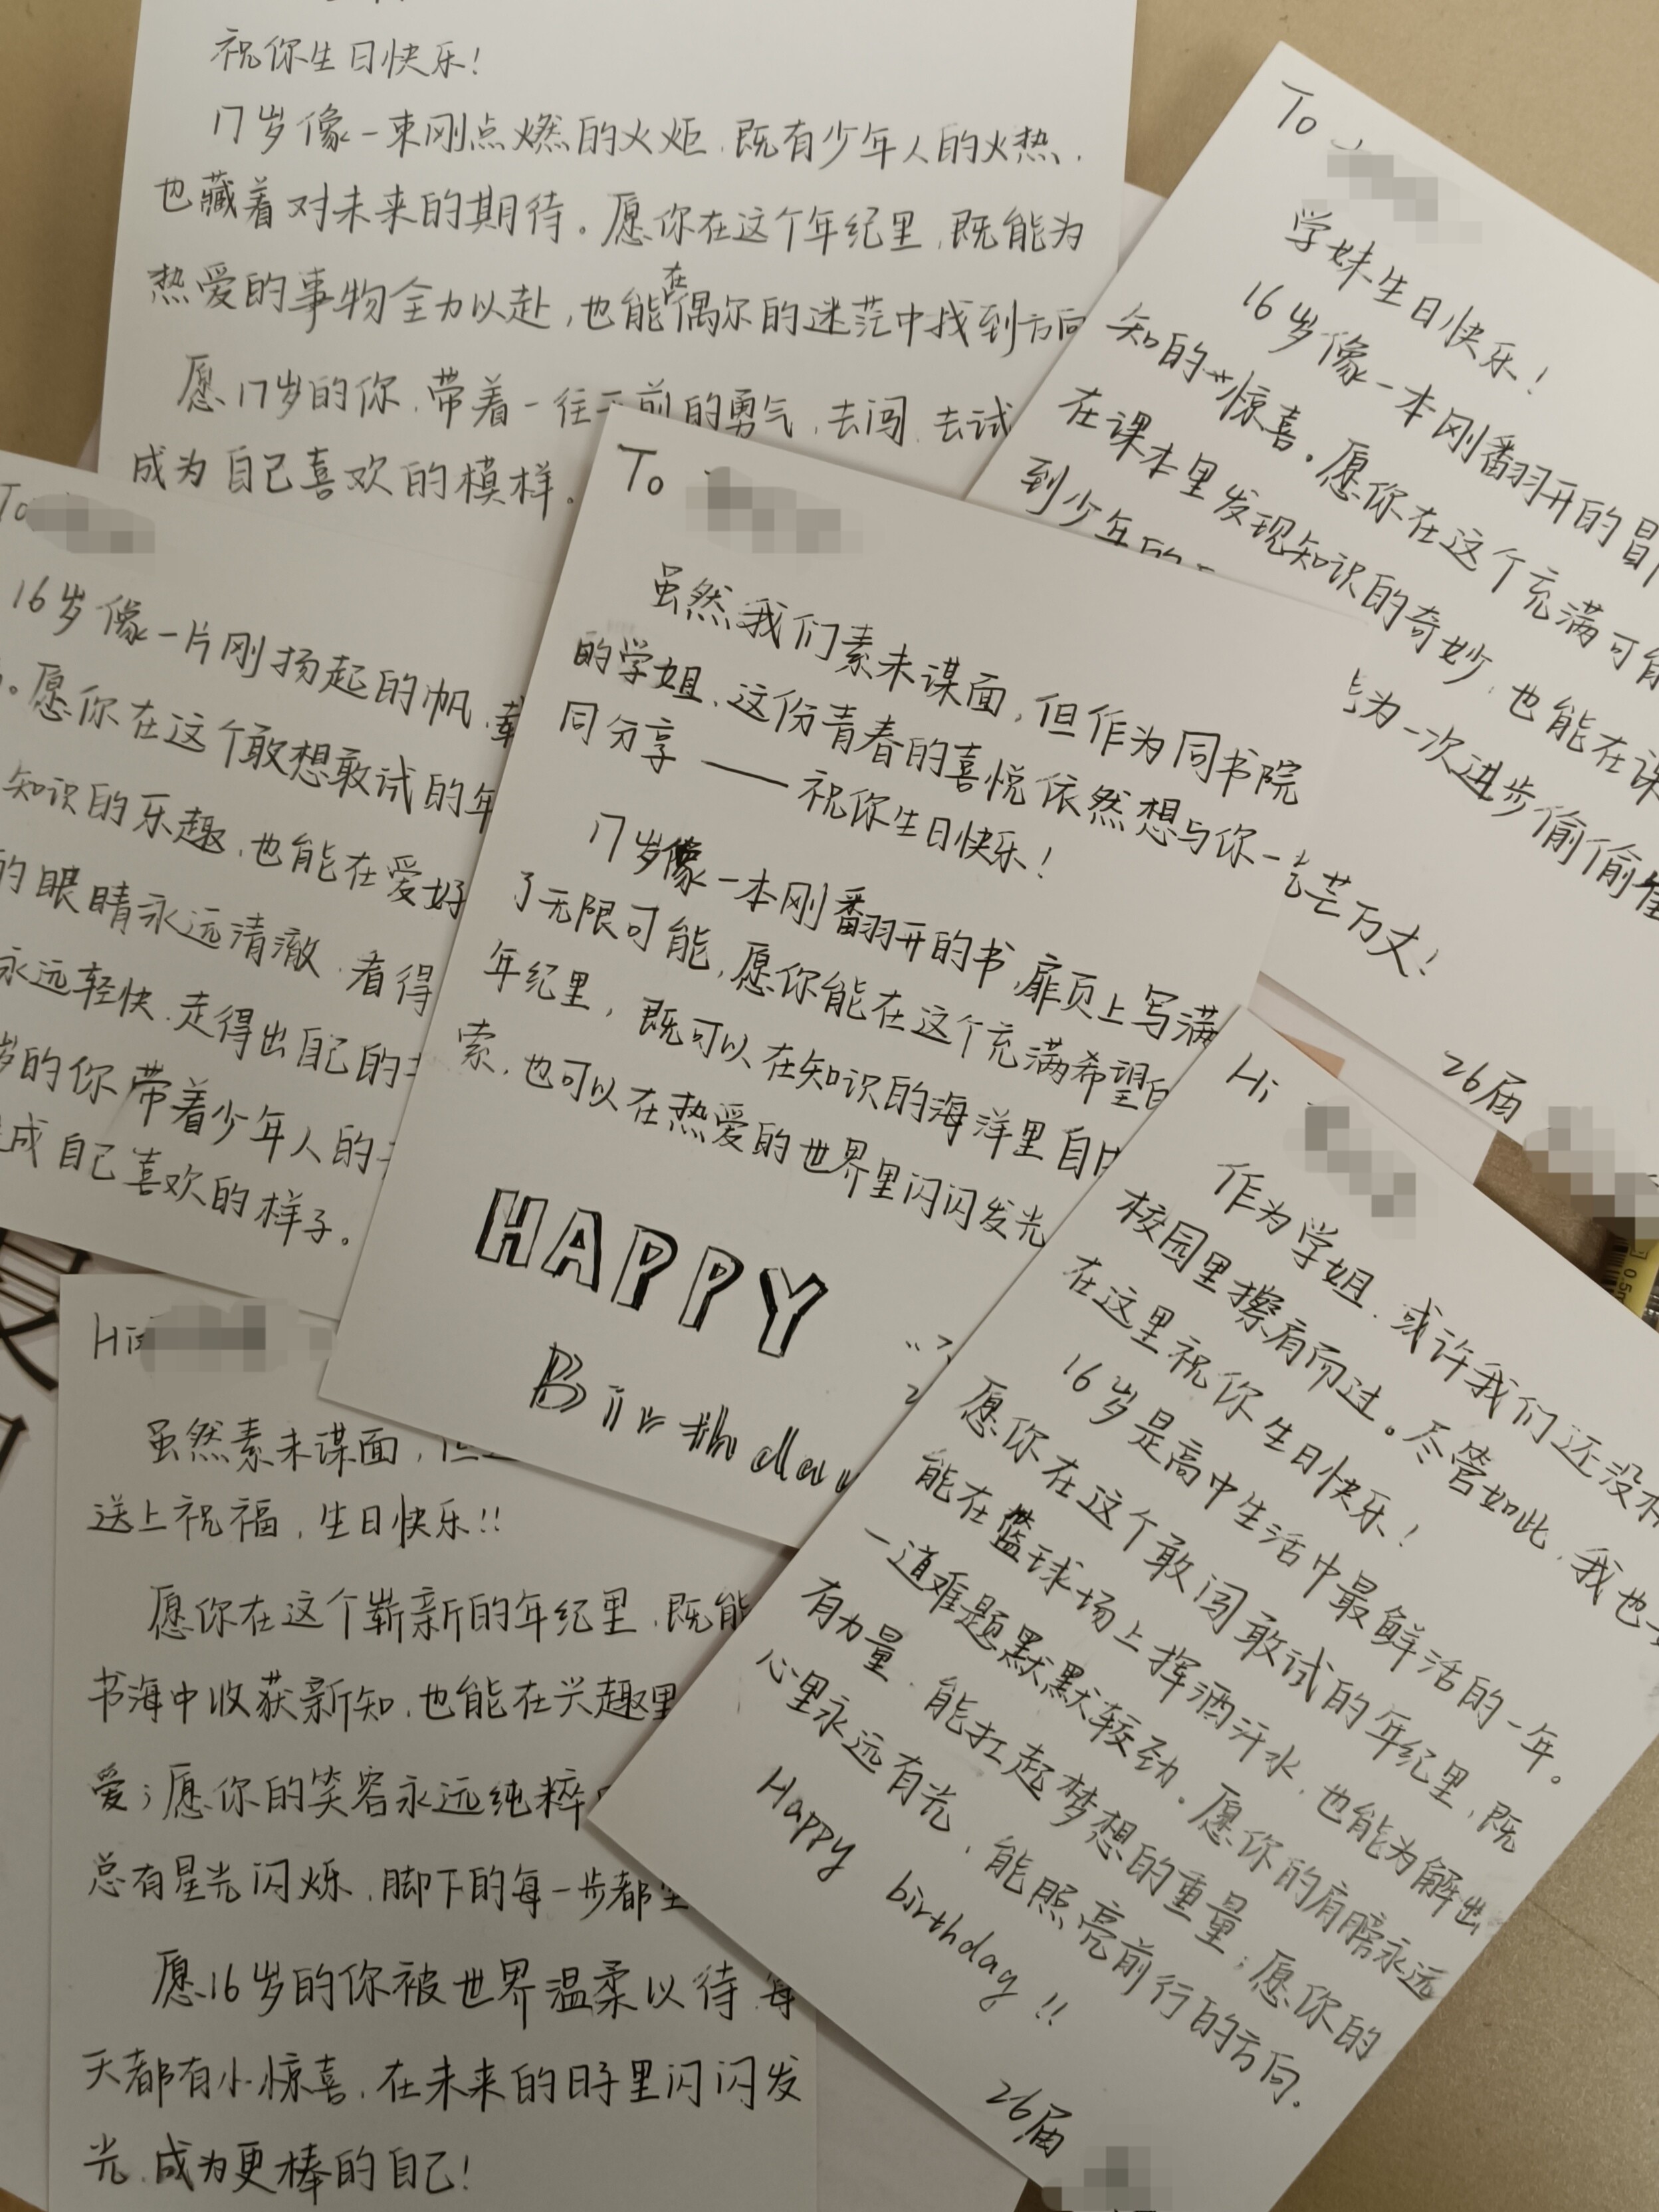 祝你生日快乐!
17岁像一束刚点燃的火炬,既有少年人的火热,
也藏着对未来的期待。愿你在这个年纪里,既能为
热爱的事物全力以赴,也能在偶尔的迷茫中找到方向
愿17岁的你,带着一往无前的勇气,去闯,去试
成为自己喜欢的模样。
To
学妹生日快乐!
16岁像一本刚翻开的冒
知的惊喜。愿你在这个充满可能
在课本里发现知识的奇妙,也能在课
到少年的
为一次进步偷偷
芒万丈!
26届
To
16岁像一片刚扬起的帆,载
。愿你在这个敢想敢试的年
知识的乐趣,也能在爱好
的眼睛永远清澈,看得
永远轻快,走得出自己的
岁的你带着少年人的
成自己喜欢的样子。
To
虽然我们素未谋面,但作为同书院
的学姐,这份青春的喜悦依然想与你一
同分享——祝你生日快乐!
17岁像一本刚翻开的书,扉页上写满
了无限可能,愿你能在这个充满希望的
年纪里,既可以在知识的海洋里自由
索,也可以在热爱的世界里闪闪发光
HAPPY
Birthday
Hi
作为学姐,或许我们还没有
校园里擦肩而过。尽管如此,我也
在这里祝你生日快乐!
16岁是高中生活中最鲜活的一年。
愿你在这个敢闯敢试的年纪里,既
能在篮球场上挥洒汗水,也能为解出
一道难题默默较劲。愿你的肩膀永远
有力量,能扛起梦想的重量;愿你的
心里永远有光,能照亮前行的方向.
Happy birthday!!
26届
Hi
虽然素未谋面,但
送上祝福,生日快乐!!
愿你在这个崭新的年纪里,既能
书海中收获新知,也能在兴趣里
爱;愿你的笑容永远纯粹
总有星光闪烁,脚下的每一步都
愿16岁的你被世界温柔以待,每
天都有小惊喜,在未来的日子里闪闪发
光,成为更棒的自己!
0.5